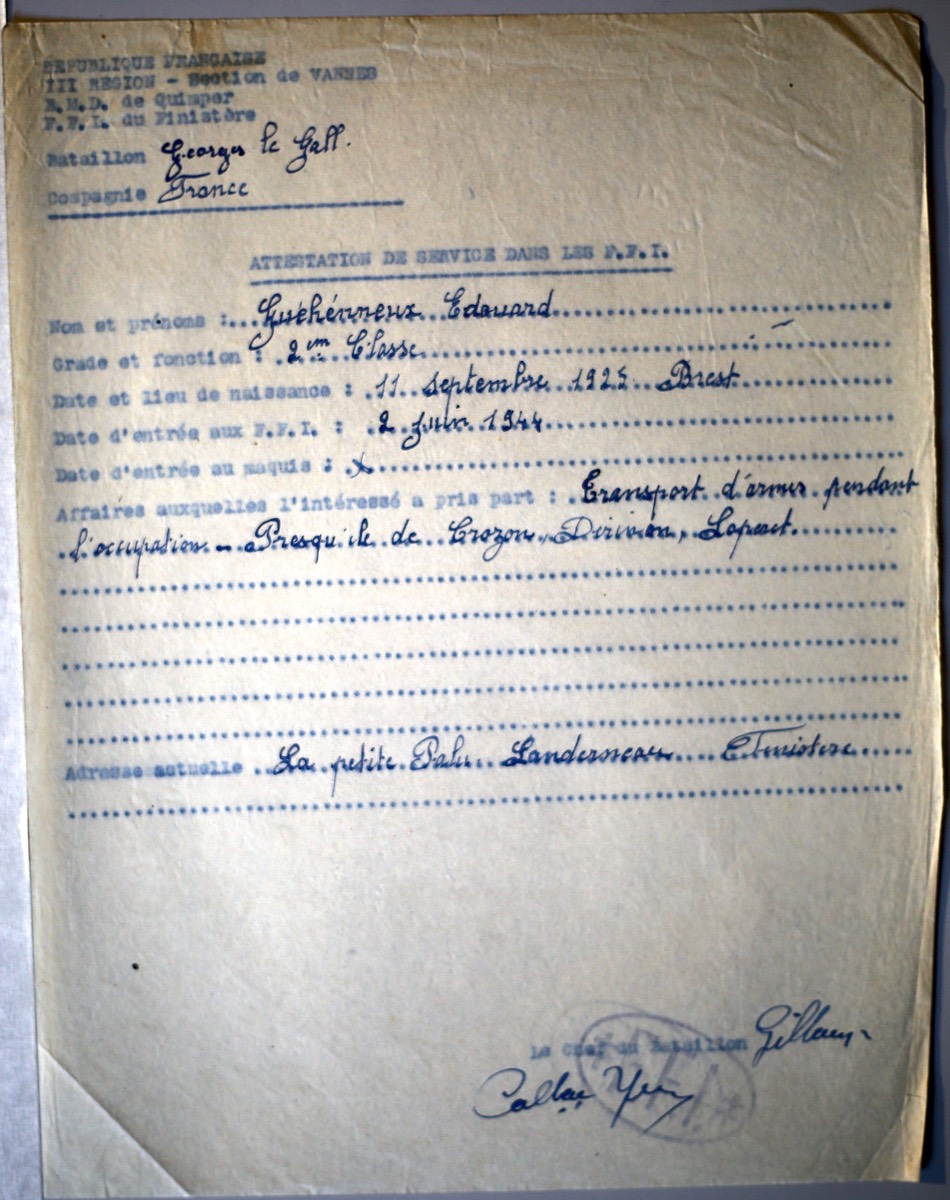 REPUBLIQUE FRANCAISE
III REGION - Section de VANNES
B.M.D. de Quimper
F.F.I. du Finistère
Bataillon Georges le Gall.
Compagnie France
ATTESTATION DE SERVICE DANS LES F.F.I.
Nom et prénoms : Guéhénneux Edouard
Grade et fonction : 2èm Classe
Date et lieu de naissance : 11 septembre 1925 Brest
Date d'entrée aux F.F.I. : 2 Juin 1944
Date d'entrée au maquis : x
Affaires auxquelles l'intéressé a pris part : Transport d'armes pendant
l'occupation - Presqu'ile de Crozon, Dirinon, Loperet.
Adresse actuelle La petite Palu Landerneau Finistere
Le Chef du Bataillon